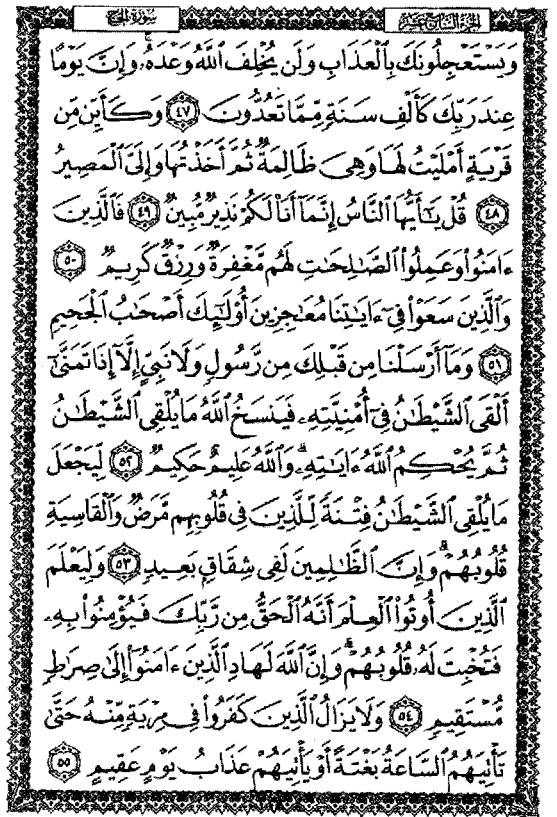 سورة الحج
الجزء السابع عشر
وَيَسْتَعْجِلُونَكَ بِالْعَذَابِ وَلَن يُخْلِفَ اللَّهُ وَعْدَهُۥ وَإِنَّ يَوْمًا
عِندَ رَبِّكَ كَأَلْفِ سَنَةٍ مِّمَّا تَعُدُّونَ ٤٧ وَكَأَيِّن مِّن
قَرْيَةٍ أَمْلَيْتُ لَهَا وَهِىَ ظَالِمَةٌ ثُمَّ أَخَذْتُهَا وَإِلَىَّ الْمَصِيرُ
٤٨ قُلْ يَٰٓأَيُّهَا النَّاسُ إِنَّمَآ أَنَا۠ لَكُمْ نَذِيرٌ مُّبِينٌ ٤٩ فَالَّذِينَ
ءَامَنُوا۟ وَعَمِلُوا۟ الصَّٰلِحَٰتِ لَهُم مَّغْفِرَةٌ وَرِزْقٌ كَرِيمٌ ٥٠
وَالَّذِينَ سَعَوْا۟ فِىٓ ءَايَٰتِنَا مُعَٰجِزِينَ أُو۟لَٰٓئِكَ أَصْحَٰبُ الْجَحِيمِ
٥١ وَمَآ أَرْسَلْنَا مِن قَبْلِكَ مِن رَّسُولٍ وَلَا نَبِىٍّ إِلَّآ إِذَا تَمَنَّىٰٓ
أَلْقَى الشَّيْطَٰنُ فِىٓ أُمْنِيَّتِهِۦ فَيَنسَخُ اللَّهُ مَا يُلْقِى الشَّيْطَٰنُ
ثُمَّ يُحْكِمُ اللَّهُ ءَايَٰتِهِۦ ۗ وَاللَّهُ عَلِيمٌ حَكِيمٌ ٥٢ لِّيَجْعَلَ
مَا يُلْقِى الشَّيْطَٰنُ فِتْنَةً لِّلَّذِينَ فِى قُلُوبِهِم مَّرَضٌ وَالْقَاسِيَةِ
قُلُوبُهُمْ ۗ وَإِنَّ الظَّٰلِمِينَ لَفِى شِقَاقٍۭ بَعِيدٍ ٥٣ وَلِيَعْلَمَ
الَّذِينَ أُوتُوا۟ الْعِلْمَ أَنَّهُ الْحَقُّ مِن رَّبِّكَ فَيُؤْمِنُوا۟ بِهِۦ
فَتُخْبِتَ لَهُۥ قُلُوبُهُمْ ۗ وَإِنَّ اللَّهَ لَهَادِ الَّذِينَ ءَامَنُوٓا۟ إِلَىٰ صِرَٰطٍ
مُّسْتَقِيمٍ ٥٤ وَلَا يَزَالُ الَّذِينَ كَفَرُوا۟ فِى مِرْيَةٍ مِّنْهُ حَتَّىٰ
تَأْتِيَهُمُ السَّاعَةُ بَغْتَةً أَوْ يَأْتِيَهُمْ عَذَابُ يَوْمٍ عَقِيمٍ ٥٥